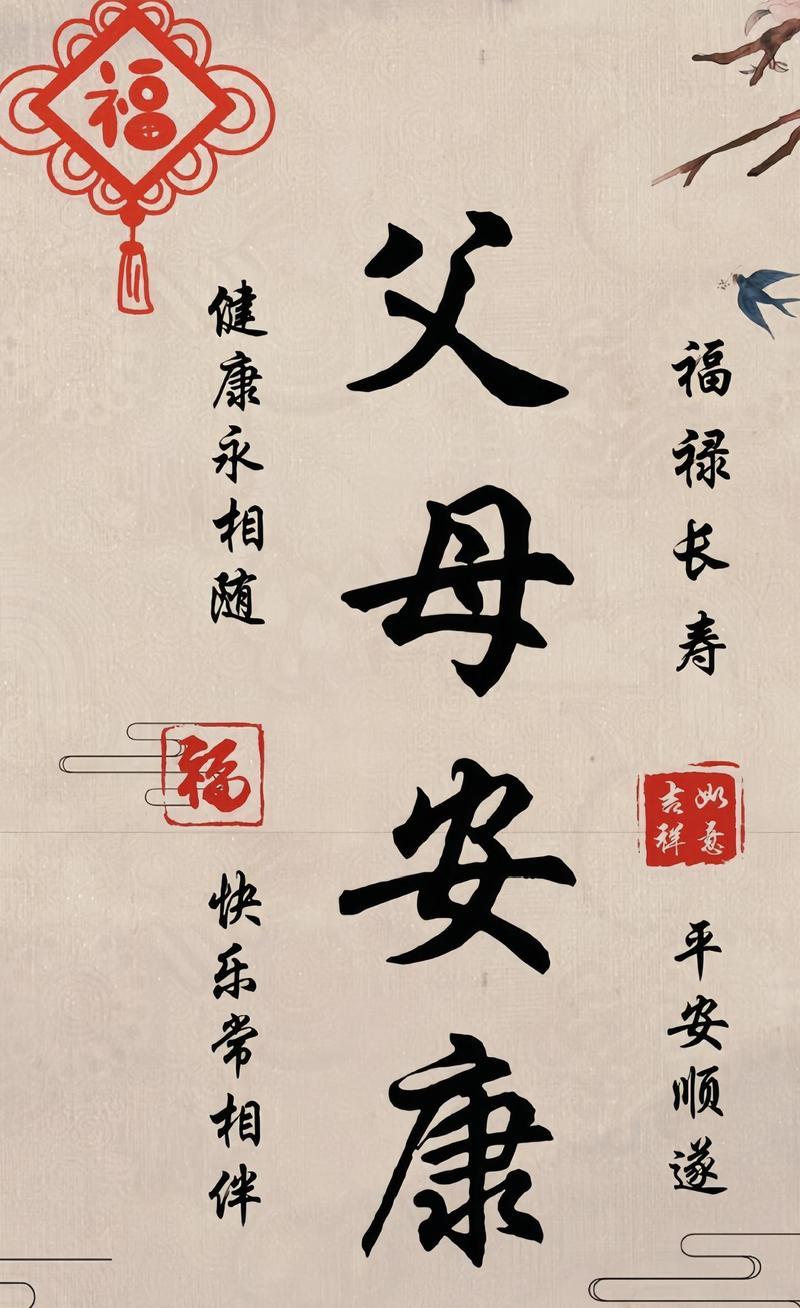 福
父母安康
福禄长寿
如意吉祥
平安顺遂
健康永相随
福
快乐常相伴